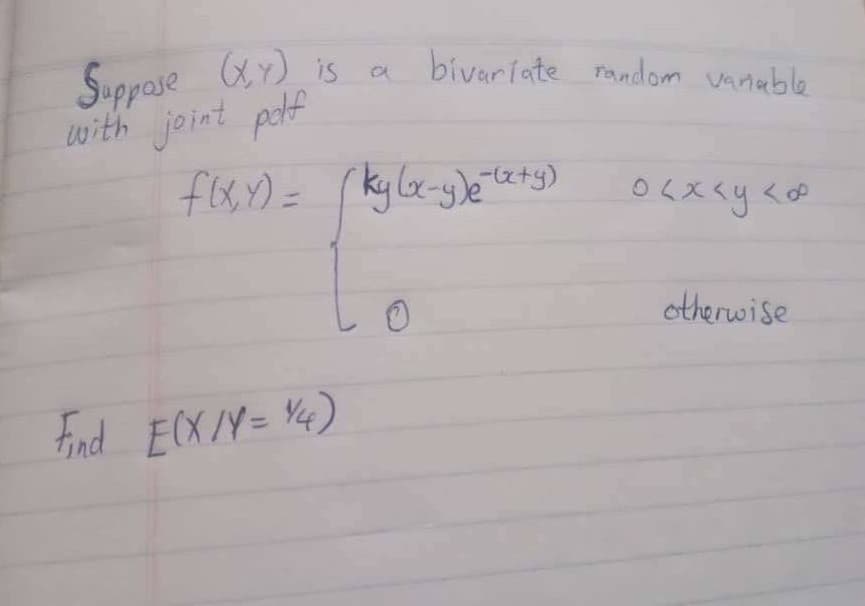 Suppose (X,Y) is a bivariate random variable
with joint pdf
f(X,Y) = { ky(x-y)e^-(x+y) 0<x<y<∞
0 otherwise
Find E(X/Y= 1/4)